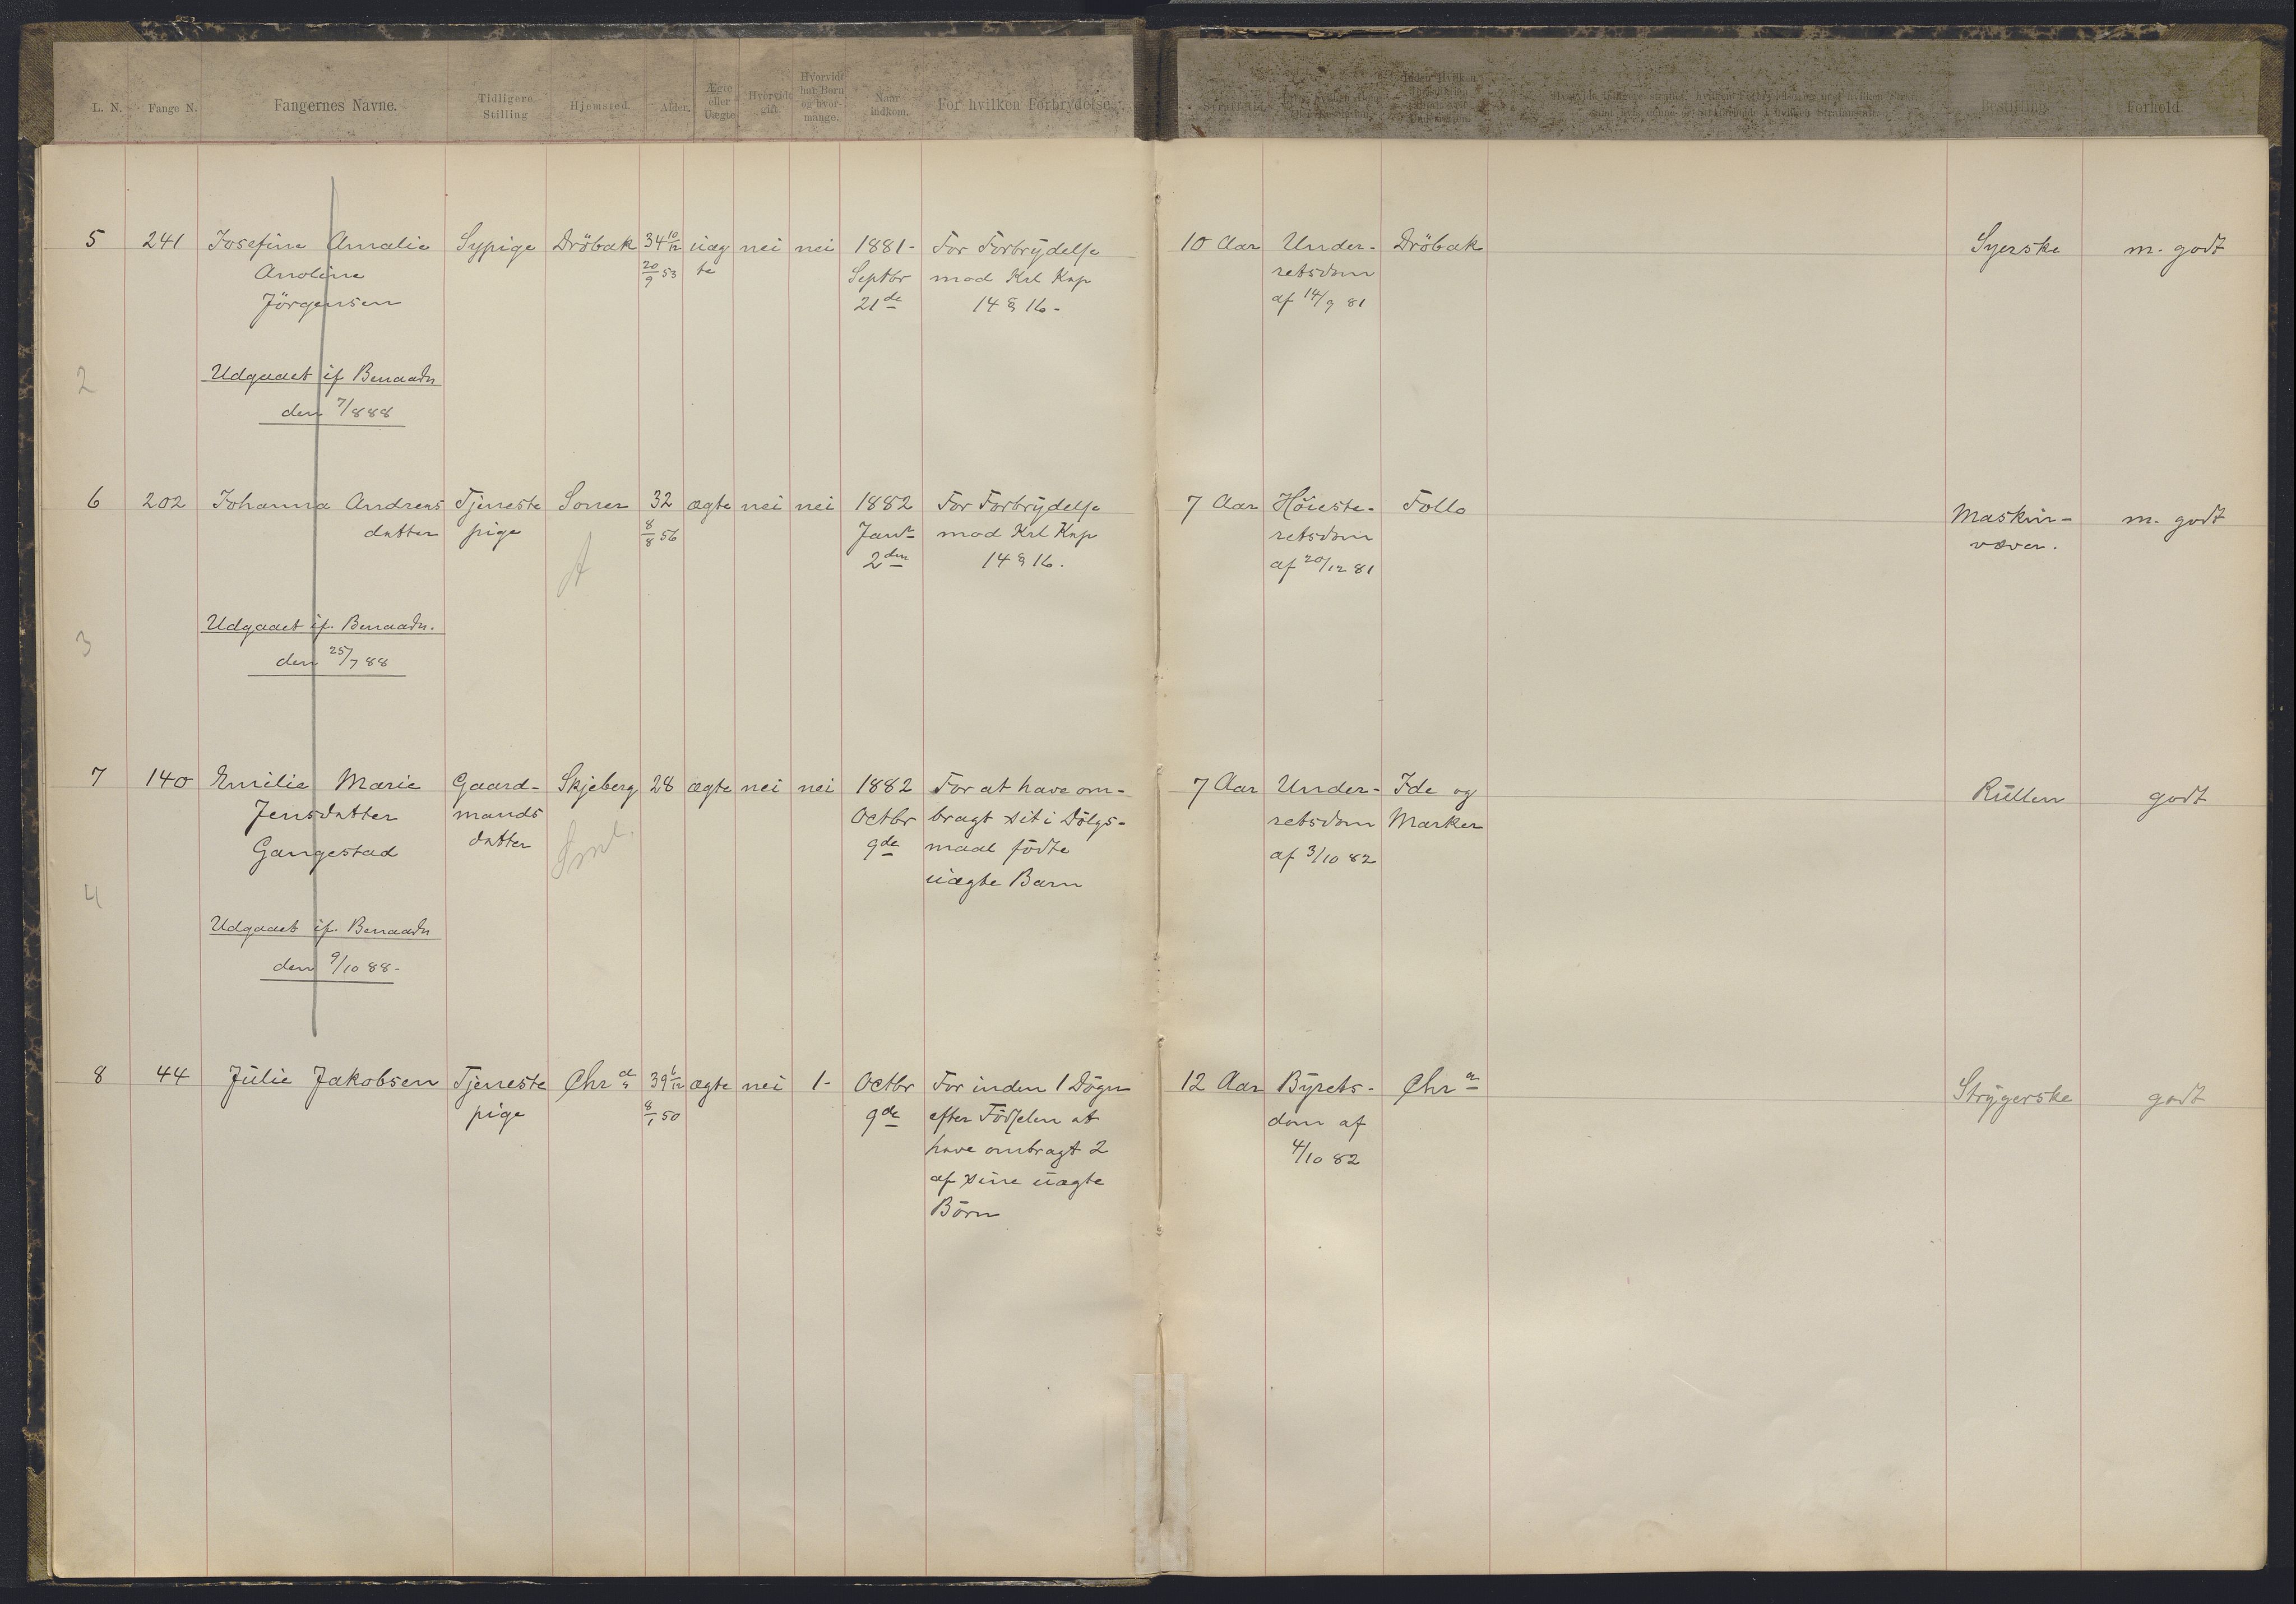 L. N. Fange N. Fangernes Navne. Tidligere Stilling Hjemsted. Alder. Ægte eller Uægte Hvorvidt gift. Hvorvidt har Børn og hvormange. Naar indkom. For hvilken Forbrydelse. Straffetid. Bestilling. Forhold.
5 241 Josefine Amalie Sypige Dröbak 34 10/12 uæg nei nei 1881- For Forbrydelse 10 Aar Under- Dröbak Syerske m. godt
Anoline 20/9 53 te Septbr mod Krl Kap retsdom
Jörgensen 21de 14 § 16- af 14/9 81
2 Udgaaet if Benaadn
den 7/8 88
6 202 Johanna Andreas Tjeneste Soner 32 ægte nei nei 1882 For Forbrydelse 7 Aar Höieste- Follo Maskin- m. godt
datter pige 8/8 56 Janr mod Krl Kap retsdom væver.
A 2den 14 § 16. af 20/12 81
3 Udgaaet if. Benaadn.
den 25/7 88
7 140 Emilie Marie Gaard- Skjeberg 28 ægte nei nei 1882 For at have om- 7 Aar Under- Ide og Rullen godt
Jensdatter mands Octbr bragt sit i Dölgs- retsdom Marker
Gangestad datter 9de maal födte af 3/10 82
uægte Barn
4 Udgaaet if. Benaadn
den 9/10 88-
8 44 Julie Jakobsen Tjeneste Chra 39 1/12 ægte nei 1- Octbr For inden 1 Dögn 12 Aar Byrets- Chra Strygerske godt
pige 8/1 50 9de efter Födselen at dom af
have ombragt 2 4/10 82
af sine uægte
Börn